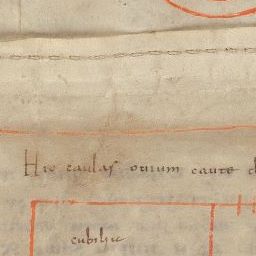 Hic caulas ouium caute
cubiliũ